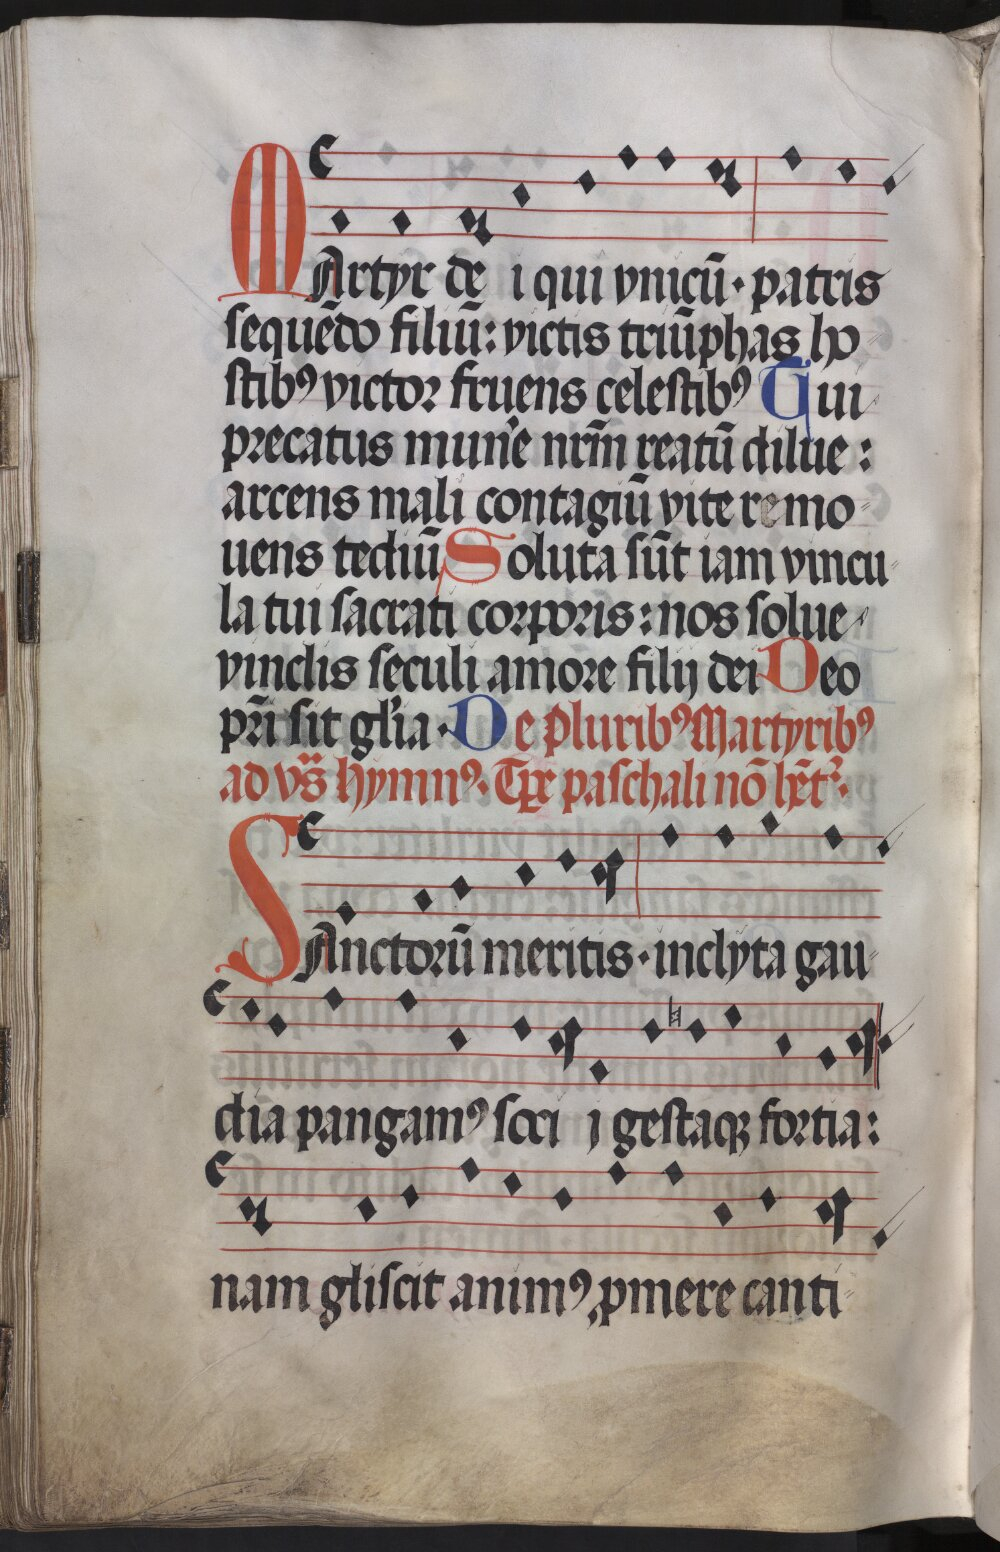 MArtyr de i qui vnicū · patris
sequēdo filiū: victis triūphas ho
stibꝰ victor fruens celestibꝰ Qui
precatus mun̓e nrm̄ reatū dilue:
arcens mali contagiū vite remo
uens tediū Soluta sūt iam vincu
la tui sacrati corporis: nos solue
vinclis seculi amore filij dei Deo
pr̄i sit gl̓ia · De pluribꝰ Martyribꝰ
ad vs̄ hymnꝰ. Tp̄e paschali nō
SAnctorū meritis · inclyta gau
dia pangamꝰ soci j gestaqꝫ fortia:
nam gliscit animꝰ ꝓmere canti